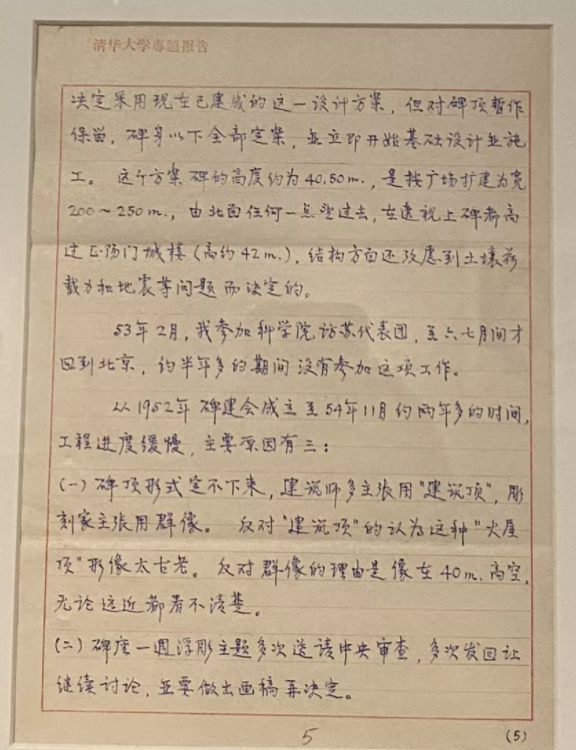 清华大学专题报告
决定采用现在已建成的这一设计方案，但对碑顶暂作
保留，碑身以下全部定案，並立即开始基础设计並施
工。 这个方案碑的高度约为40.50m.，是按广场扩建为宽
200～250m.，由北面任何一点望过去，在透视上碑都高
过正阳门城楼（高约42m.），结构方面还攷虑到土壤荷
载力和地震等问题而决定的。
53年2月，我参加科学院访苏代表团，至六七月间才
回到北京，约半年多的期间没有参加这项工作。
从1952年碑建会成立至54年11月约两年多的时间，
工程进度缓慢，主要原因有三：
(一) 碑顶形式定不下来，建筑师多主张用"建筑顶"，彫
刻家主张用群像。 反对"建筑顶"的认为这种"大屋
顶"形像太古老。反对群像的理由是像在40m.高空，
无论远近都看不清楚。
(二) 碑座一週浮彫主题多次送请中央审查，多次发回让
继续讨论，並要做出画稿再决定。
5
(5)